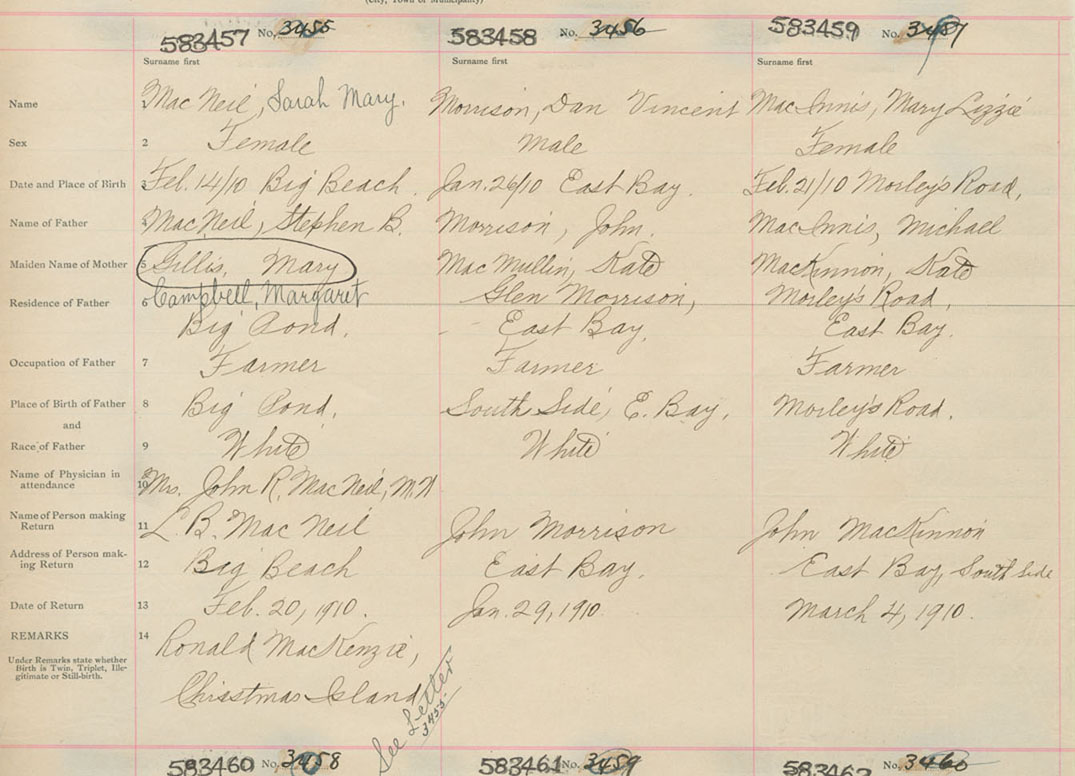 (City, Town or Municipality)
583457 No. 3455 583458 No. 3456 583459 No. 3457
Surname first Surname first Surname first
Name 1 Mac Neil, Sarah Mary. Morrison, Dan Vincent MacInnis, Mary Lizzie
Sex 2 Female Male Female
Date and Place of Birth 3 Feb. 14/10 Big Beach. Jan. 26/10 East Bay. Feb. 21/10 Morley's Road,
Name of Father 4 MacNeil, Stephen B. Morrison, John. MacInnis, Michael
Maiden Name of Mother 5 Gillis, Mary MacMullin, Kate MacKinnon, Kate
Residence of Father 6 Campbell, Margaret Glen Morrison, Morley's Road,
Big Pond, East Bay, East Bay.
Occupation of Father 7 Farmer Farmer Farmer
Place of Birth of Father 8 Big Pond, South Side, E. Bay, Morley's Road.
and
Race of Father 9 White White White
Name of Physician in
attendance 10 Mrs. John R. MacNeil, M.W
Name of Person making
Return 11 L. B. Mac Neil John Morrison John MacKinnon
Address of Person mak-
ing Return 12 Big Beach East Bay. East Bay, South Side
Date of Return 13 Feb. 20, 1910. Jan. 29, 1910. March 4, 1910.
REMARKS 14 Ronald MacKenzie,
Under Remarks state whether
Birth is Twin, Triplet, Ille-
gitimate or Still-birth.
Christmas Island
See Letter
3455
583460 No. 3458 583461 No. 3459 583462 No. 3460